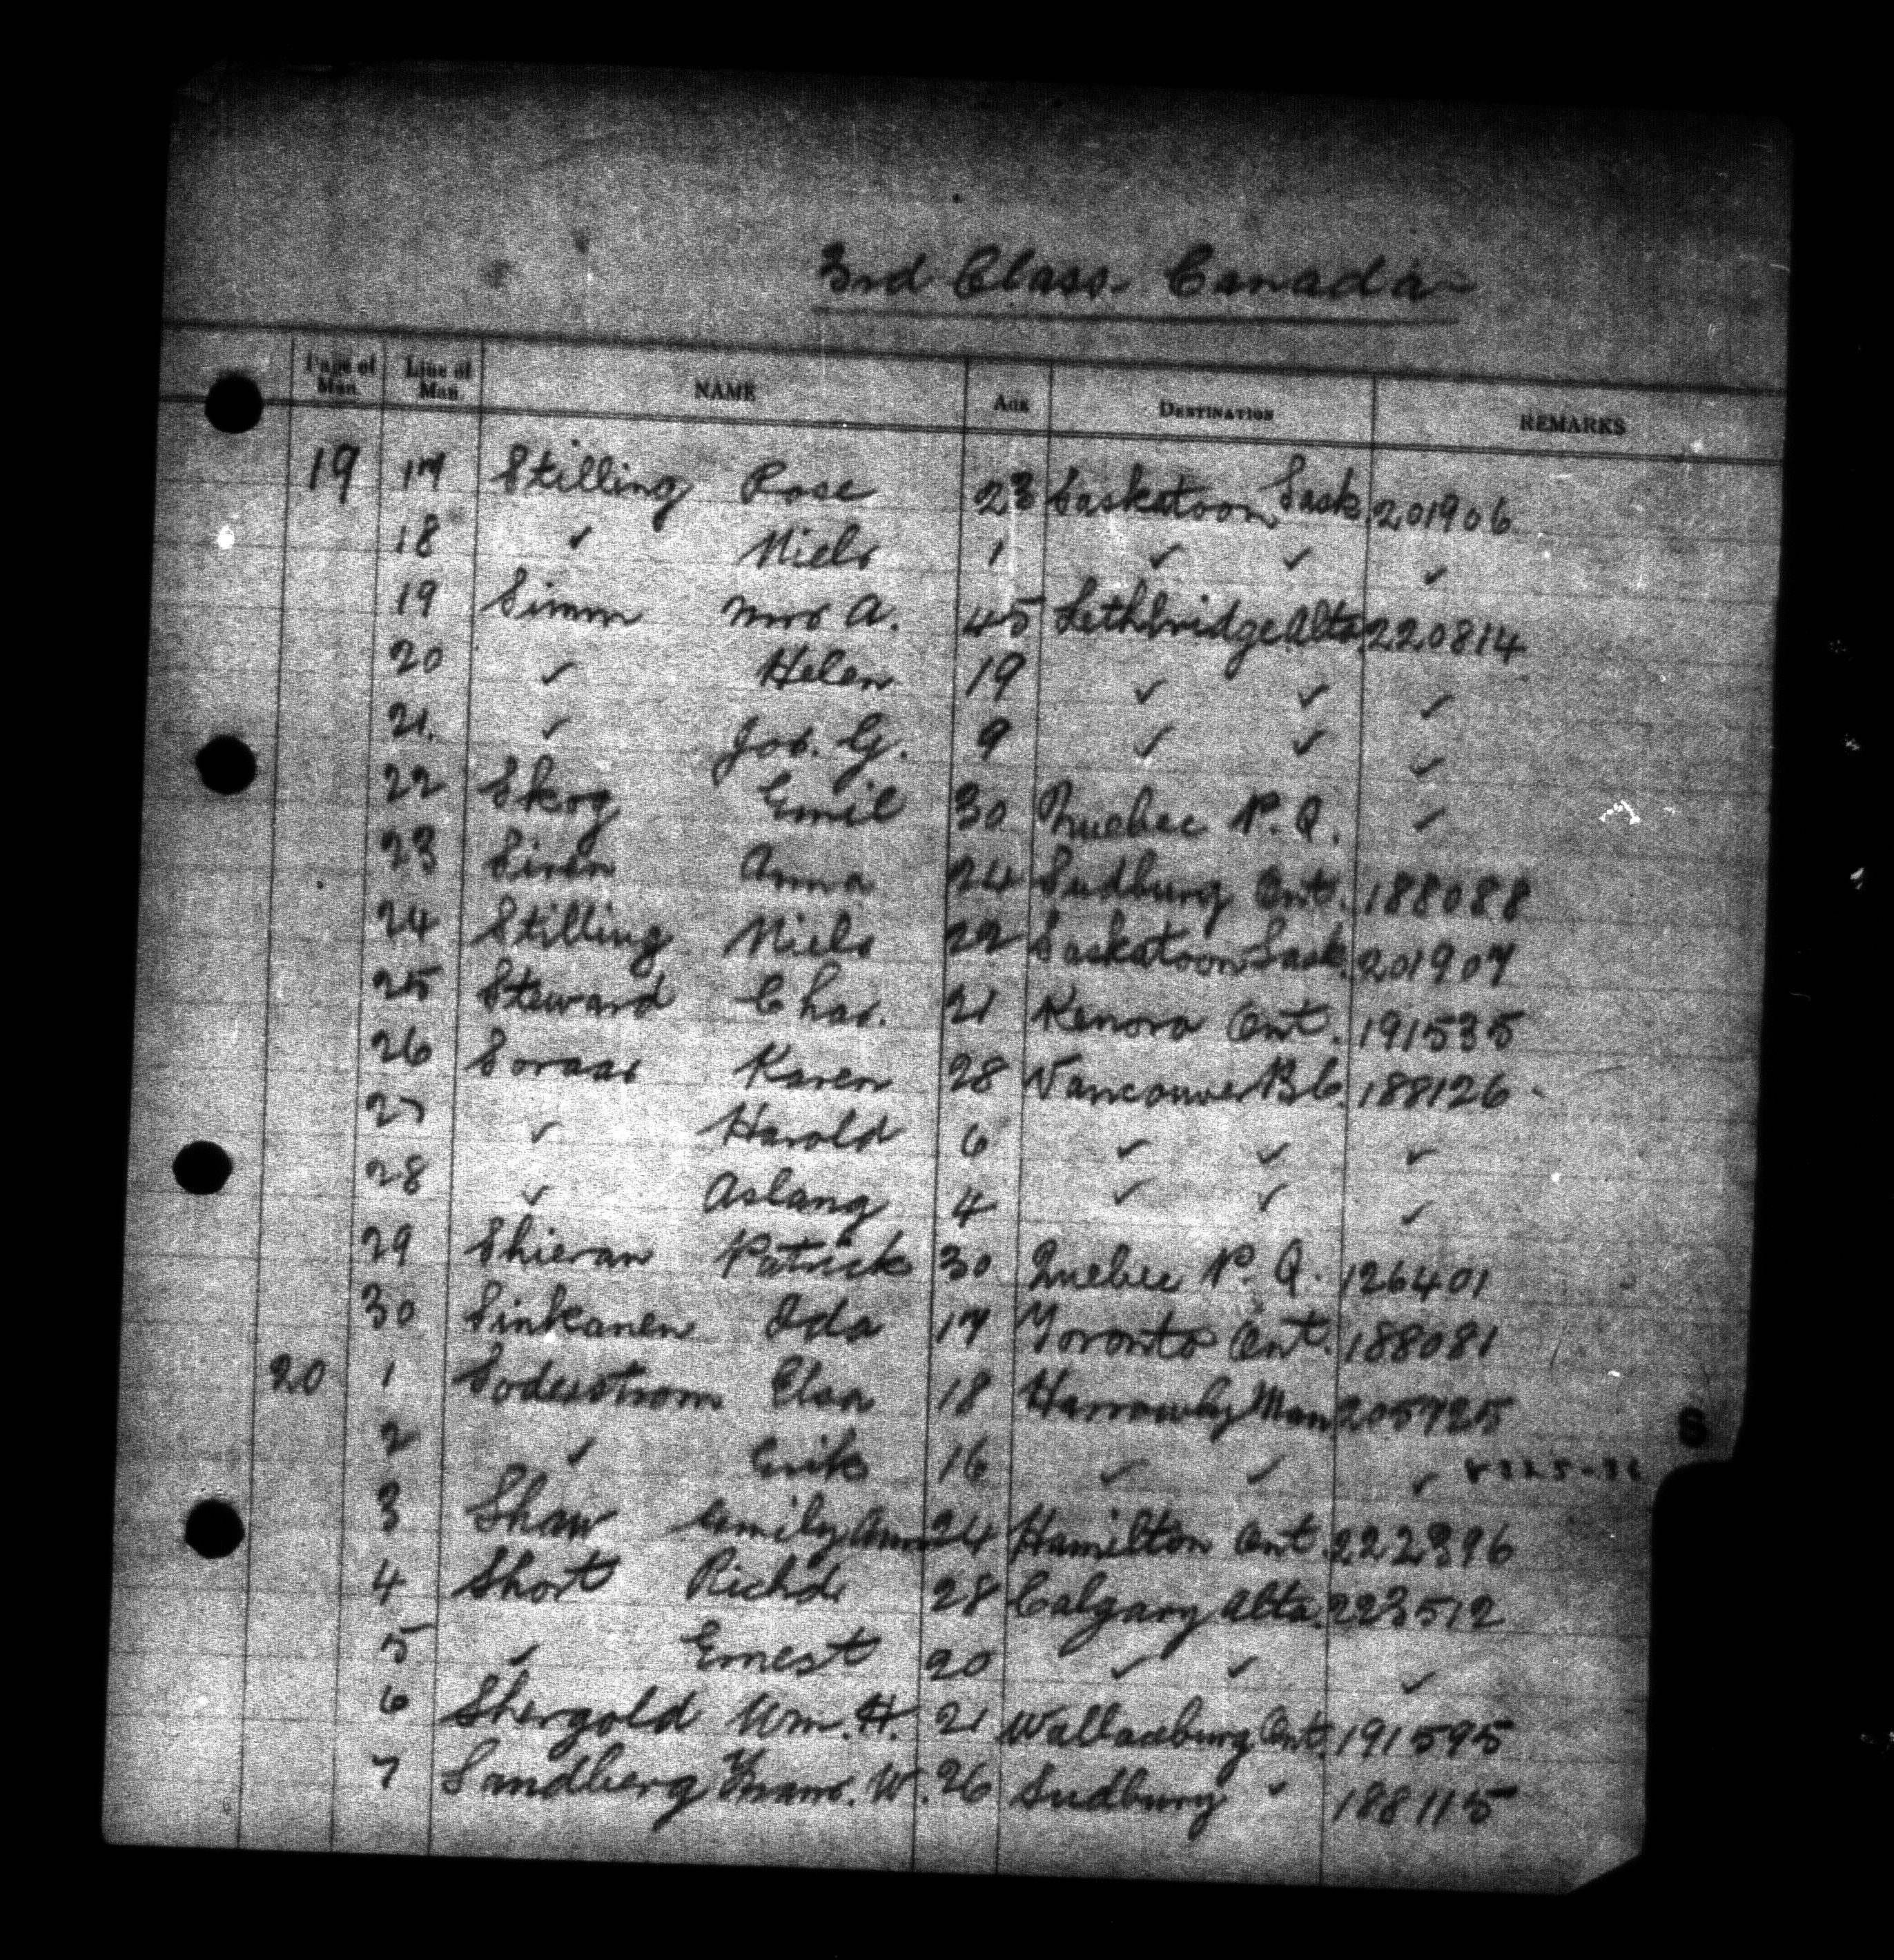 3rd Class - Canada -
Page of Man. Line of Man. NAME AGE DESTINATION REMARKS
19 17 Stilling Rose 23 Saskatoon Sask. 201906
18 ✓ Niels 1 ✓ ✓ ✓
19 Simm Mrs A. 45 Lethbridge Alta. 220814
20 ✓ Helen 19 ✓ ✓ ✓
21. ✓ Jos. G. 9 ✓ ✓ ✓
22 Skog Emil 30 Quebec P. Q. ✓
23 Siren Anna 24 Sudbury Ont. 188088
24 Stilling Niels 22 Saskatoon Sask. 201907
25 Steward Chas. 21 Kenora Ont. 191535
26 Soraas Karen 28 Vancouver B.C. 188126
27 ✓ Harold 6 ✓ ✓ ✓
28 ✓ Aslang 4 ✓ ✓ ✓
29 Shieran Patrick 30 Quebec P. Q. 126401
30 Sinkanen Ida 17 Toronto Ont. 188081
20 1 Soderstrom Elsa 18 Harrowby Man 205725
2 ✓ Erik 16 ✓ ✓ ✓
S
3 Shaw Emily Ann 24 Hamilton Ont. 222396
4 Short Richd. 28 Calgary Alta. 223512
5 ✓ Ernest 20 ✓ ✓ ✓
6 Shergold Wm. H. 21 Wallaceburg Ont. 191595
7 Sandberg Frans. W. 26 Sudbury ✓ 188115